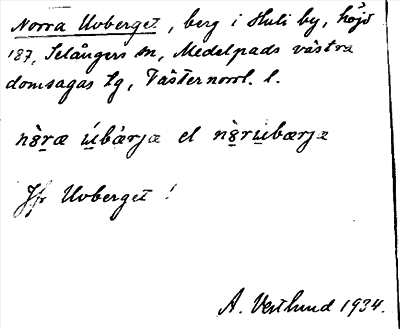 Norra Uvberget, berg i Huli by, höjd
187, Selångers sn, Medelpads västra
domsagas tg, Västernorrl. l.
nòræ ú̱bàrjæ el nòru̱bærjæ
Jfr Uvberget!
A. Vestlund 1934.